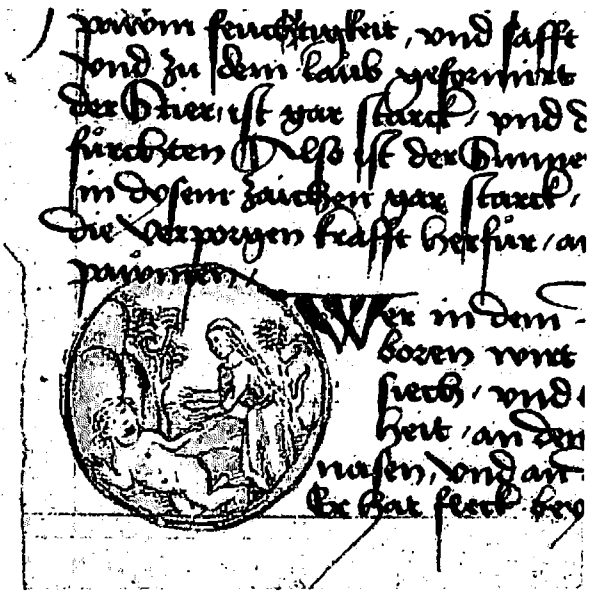 pawm feuchtigkeit, vnd safft
vnd zu dem laub geformirt
der Stier, ist gar starck, vnd d
fürchten Also ist der Sunne
in dysem zaichen gar starck,
die verporgen krafft herfür, an
pawmen,
Wer in dem
boren wirt
siech, vnd
heit, an der
nasen, vnd an
Er hat fleck bey